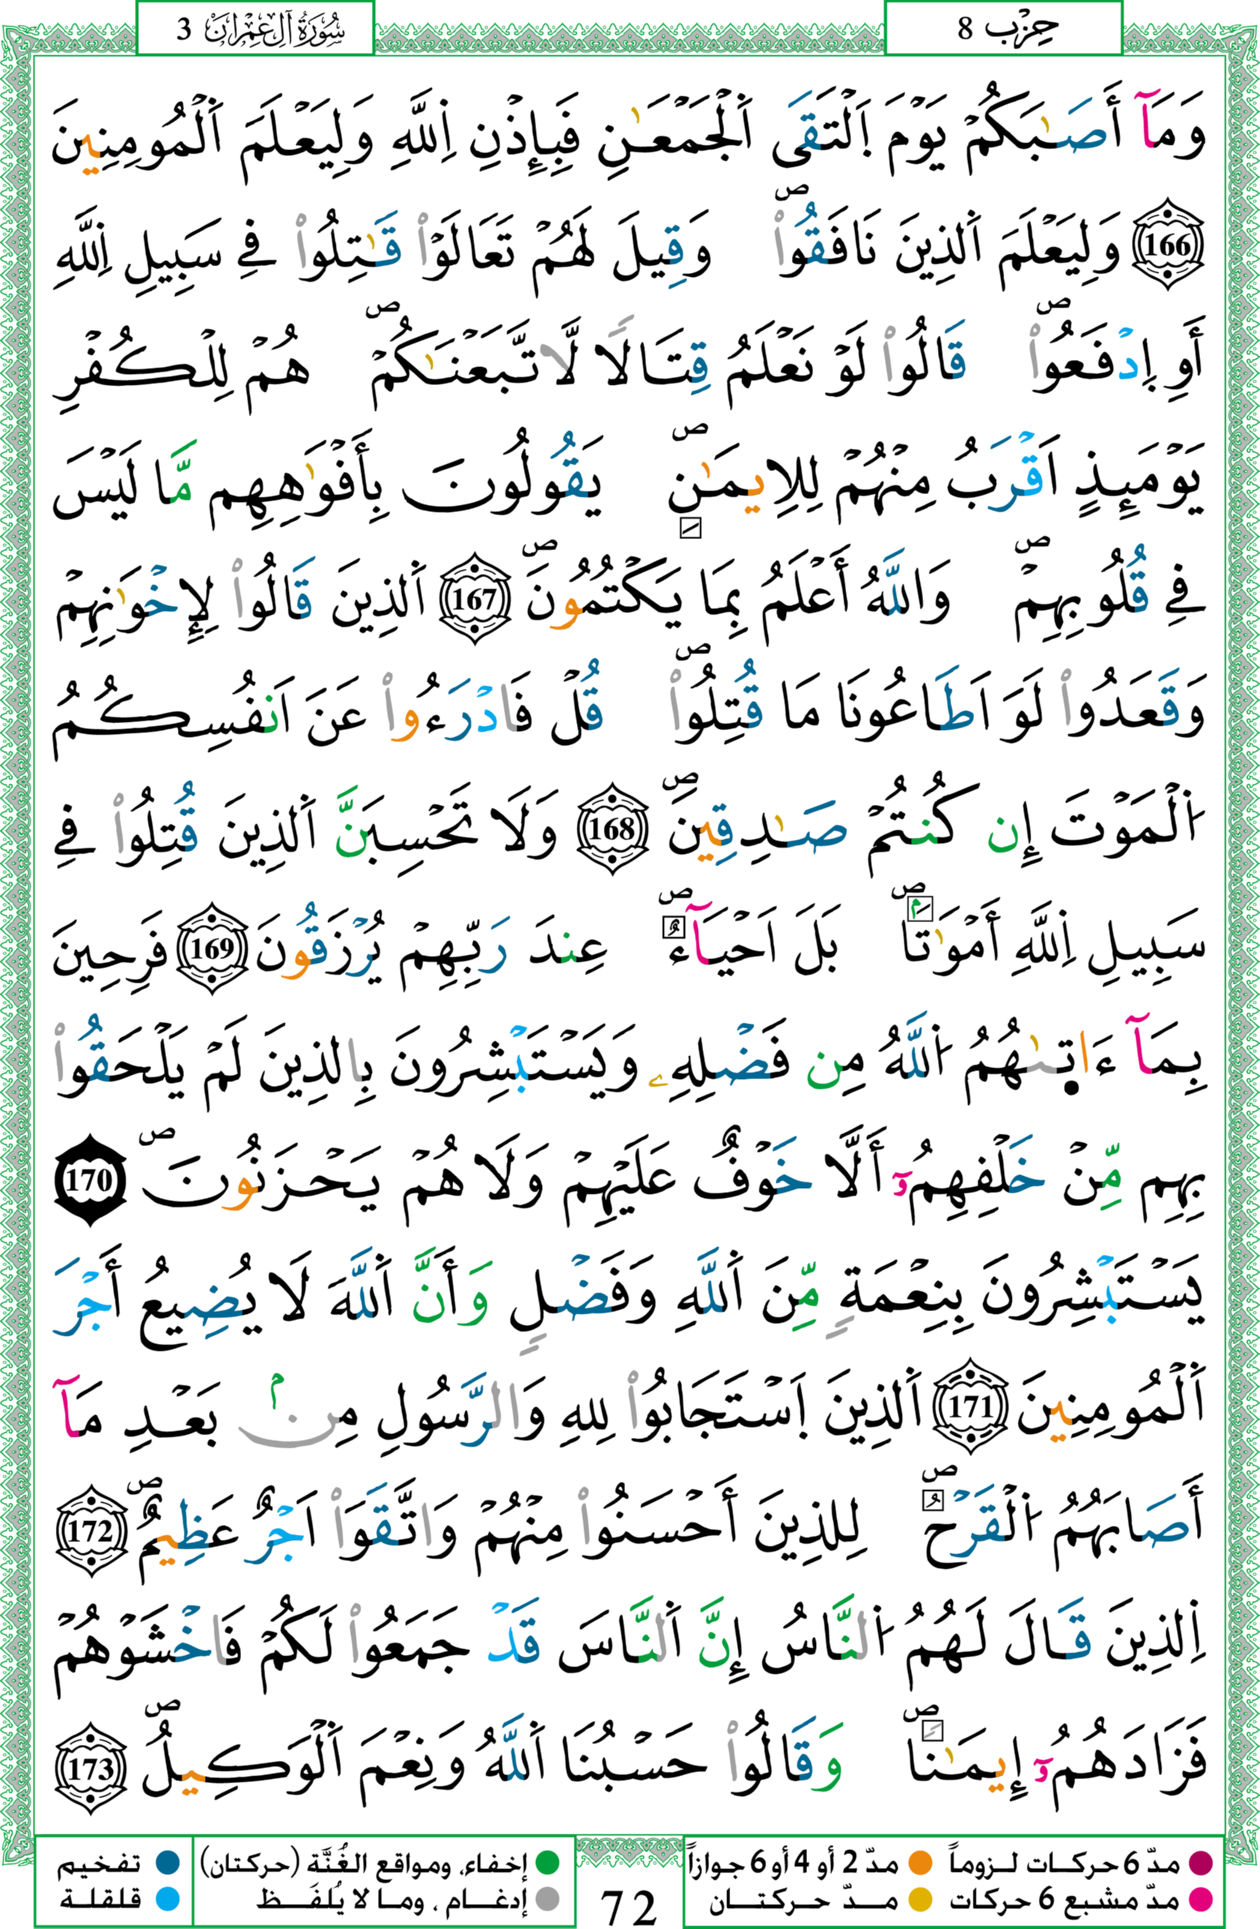 سُورَةُ آلِ عِمْرَان 3
حِزْب 8
وَمَآ أَصَٰبَكُمْ يَوْمَ اَ۬لْتَقَى اَ۬لْجَمْعَٰنِ فَبِإِذْنِ اِ۬للَّهِ وَلِيَعْلَمَ اَ۬لْمُومِنِينَ
166 وَلِيَعْلَمَ اَ۬لذِينَ نَافَقُواْۖ وَقِيلَ لَهُمْ تَعَالَوْاْ قَٰتِلُواْ فِے سَبِيلِ اِ۬للَّهِ
أَوِ اِ۪دْفَعُواْۖ قَالُواْ لَوْ نَعْلَمُ قِتَالًا لَّاتَّبَعْنَٰكُمْۖ هُمْ لِلْكُفْرِ
يَوْمَئِذٍ اَقْرَبُ مِنْهُمْ لِلِايمَٰنِۖ يَقُولُونَ بِأَفْوَٰهِهِم مَّا لَيْسَ
فِے قُلُوبِهِمْۖ وَاللَّهُ أَعْلَمُ بِمَا يَكْتُمُونَۖ 167 اَ۬لذِينَ قَالُواْ لِإِخْوَٰنِهِمْ
وَقَعَدُواْ لَوَ اَطَاعُونَا مَا قُتِلُواْۖ قُلْ فَادْرَءُواْ عَنَ اَنفُسِكُمُ
اُ۬لْمَوْتَ إِن كُنتُمْ صَٰدِقِينَۖ 168 وَلَا تَحْسِبَنَّ اَ۬لذِينَ قُتِلُواْ فِے
سَبِيلِ اِ۬للَّهِ أَمْوَٰتاَۢۖ بَلَ اَحْيَآءٌۖ عِندَ رَبِّهِمْ يُرْزَقُونَ 169 فَرِحِينَ
بِمَآ ءَاتٜىٰهُمُ اُ۬للَّهُ مِن فَضْلِهِۦ وَيَسْتَبْشِرُونَ بِالذِينَ لَمْ يَلْحَقُواْ
بِهِم مِّنْ خَلْفِهِمُۥٓ أَلَّا خَوْفٌ عَلَيْهِمْ وَلَا هُمْ يَحْزَنُونَۖ 170
يَسْتَبْشِرُونَ بِنِعْمَةٍ مِّنَ اَ۬للَّهِ وَفَضْلٍ وَأَنَّ اَ۬للَّهَ لَا يُضِيعُ أَجْرَ
اَ۬لْمُومِنِينَ 171 اَ۬لذِينَ اَ۪سْتَجَابُواْ لِلهِ وَالرَّسُولِ مِنۢ بَعْدِ مَآ
أَصَابَهُمُ اُ۬لْقَرْحُۖ لِلذِينَ أَحْسَنُواْ مِنْهُمْ وَاتَّقَوَاْ اَجْرٌ عَظِيمٌۖ 172
اِ۬لذِينَ قَالَ لَهُمُ اُ۬لنَّاسُ إِنَّ اَ۬لنَّاسَ قَدْ جَمَعُواْ لَكُمْ فَاخْشَوْهُمْ
فَزَادَهُمُۥٓ إِيمَٰناًۖ وَقَالُواْ حَسْبُنَا اَ۬للَّهُ وَنِعْمَ اَ۬لْوَكِيلُۖ 173
مدّ 6 حركات لـزوماً مدّ 2 أو 4 أو 6 جوازاً
مدّ مشبع 6 حركات مـدّ حركتـان
72
إخفاء، ومواقع الغُنَّة (حركتان) تفخيم
إدغـام ، ومـا لا يُلفَـظ قلقلة